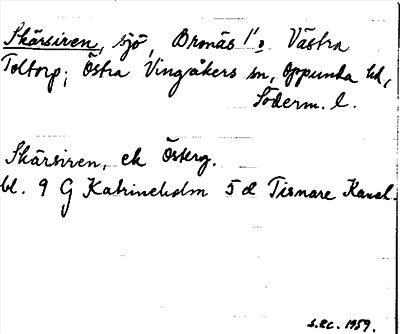 Skärsiren, sjö, Bronäs 1:2 Västra
Toltorp; Östra Vingåkers sn, Oppunda hd,
Söderm. l.
Skärsiren, ek Österg.
bl. 9 G Katrineholm 5 d Tisnare Kanal.
S.E.C. 1959.